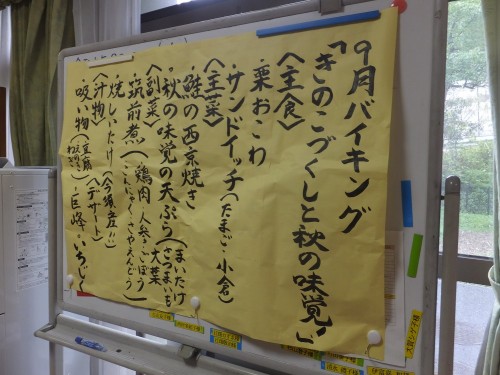 9月バイキング
「きのこづくしと秋の味覚」
〈主食〉
・栗おこわ
・サンドイッチ(たまご・小倉)
〈主菜〉
・鮭の西京焼き
・秋の味覚の天ぷら(まいたけ さつまいも 大葉
〈副菜〉
・筑前煮(鶏肉 人参 ごぼう こんにゃく さやえんどう)
・焼しいたけ(今須産!!)
〈汁物〉
・吸い物(豆腐 えのき ねぎ)
〈デザート〉
・巨峰・いちじく